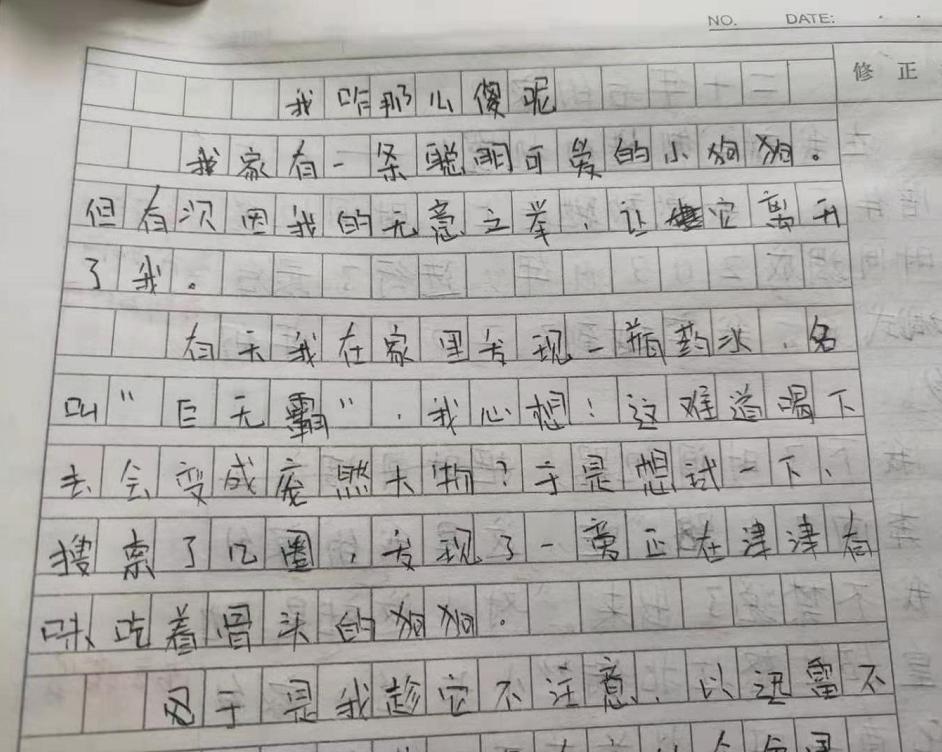 NO. DATE:
修正
我咋那么傻呢
我家有一条聪明可爱的小狗狗。
但有次因我的无意之举,让它离开
了我。
有天我在家里发现一瓶药水,名
叫“巨无霸”,我心想!这难道喝下
去会变成庞然大物?于是想试一下、
搜索了几圈,发现了一 正在津津有
味吃着骨头的狗狗.
于是我趁它不注意,以迅雷不